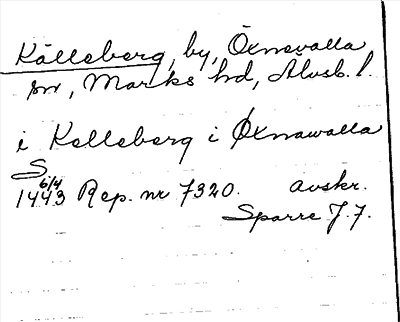 Källeberg, by, Öxnevalla
sn, Marks hd, Älvsb. l.
i Kelleberg i Øxnawalla
S.
1443 6/4 Rep. nr 7320. avskr.
Sparre J. 7.